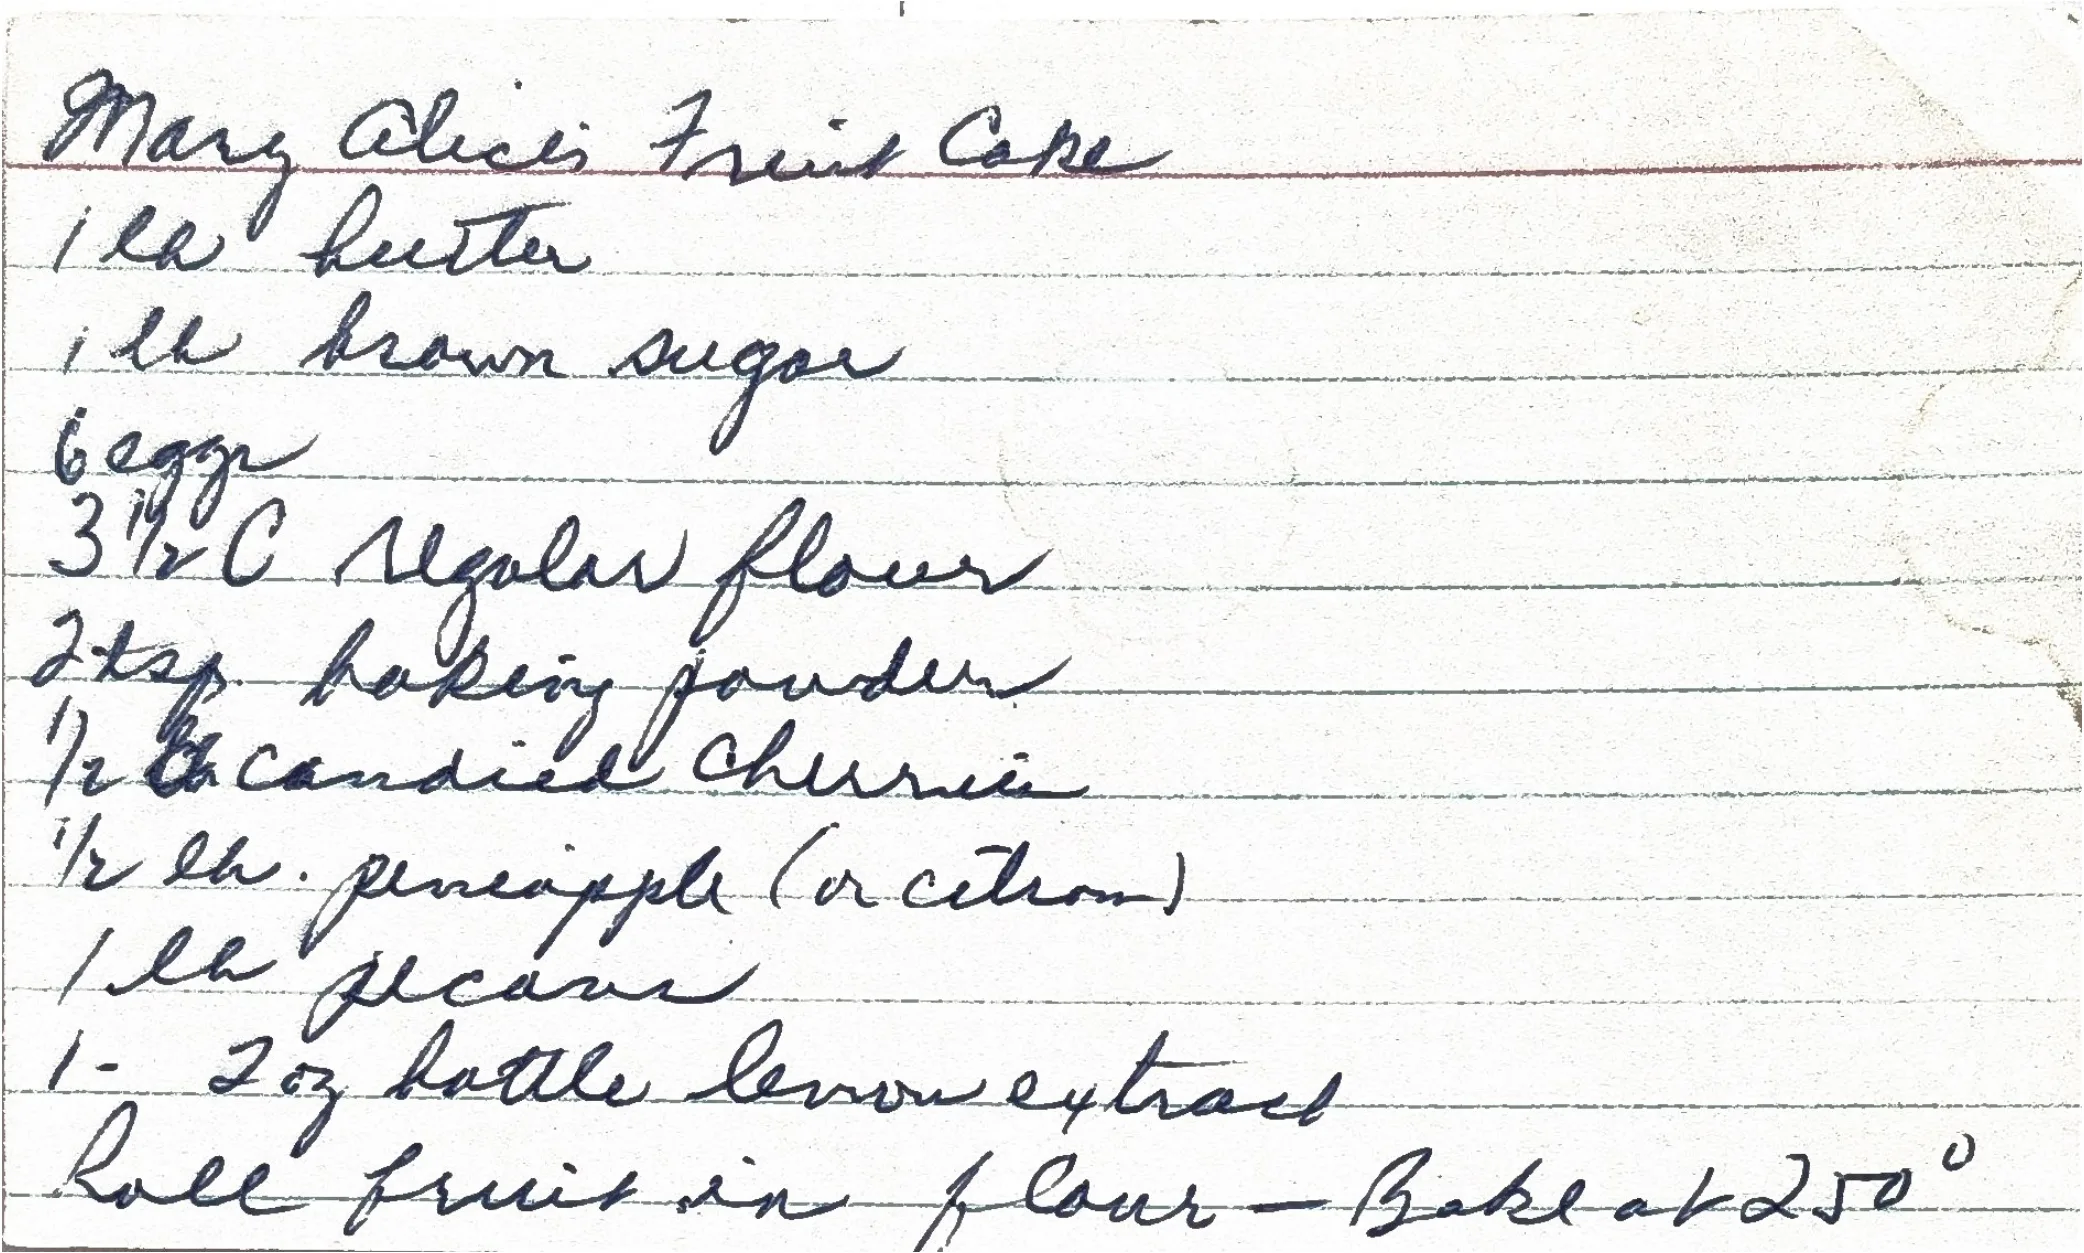 Mary Alice's Fruit Cake
1 lb butter
1 lb brown sugar
6 eggs
3 1/2 C regular flour
2 tsp. baking powder
1/2 lb candied cherries
1/2 lb. pineapple (or citron)
1 lb pecans
1- 2 oz bottle lemon extract
Roll fruit in flour — Bake at 250°